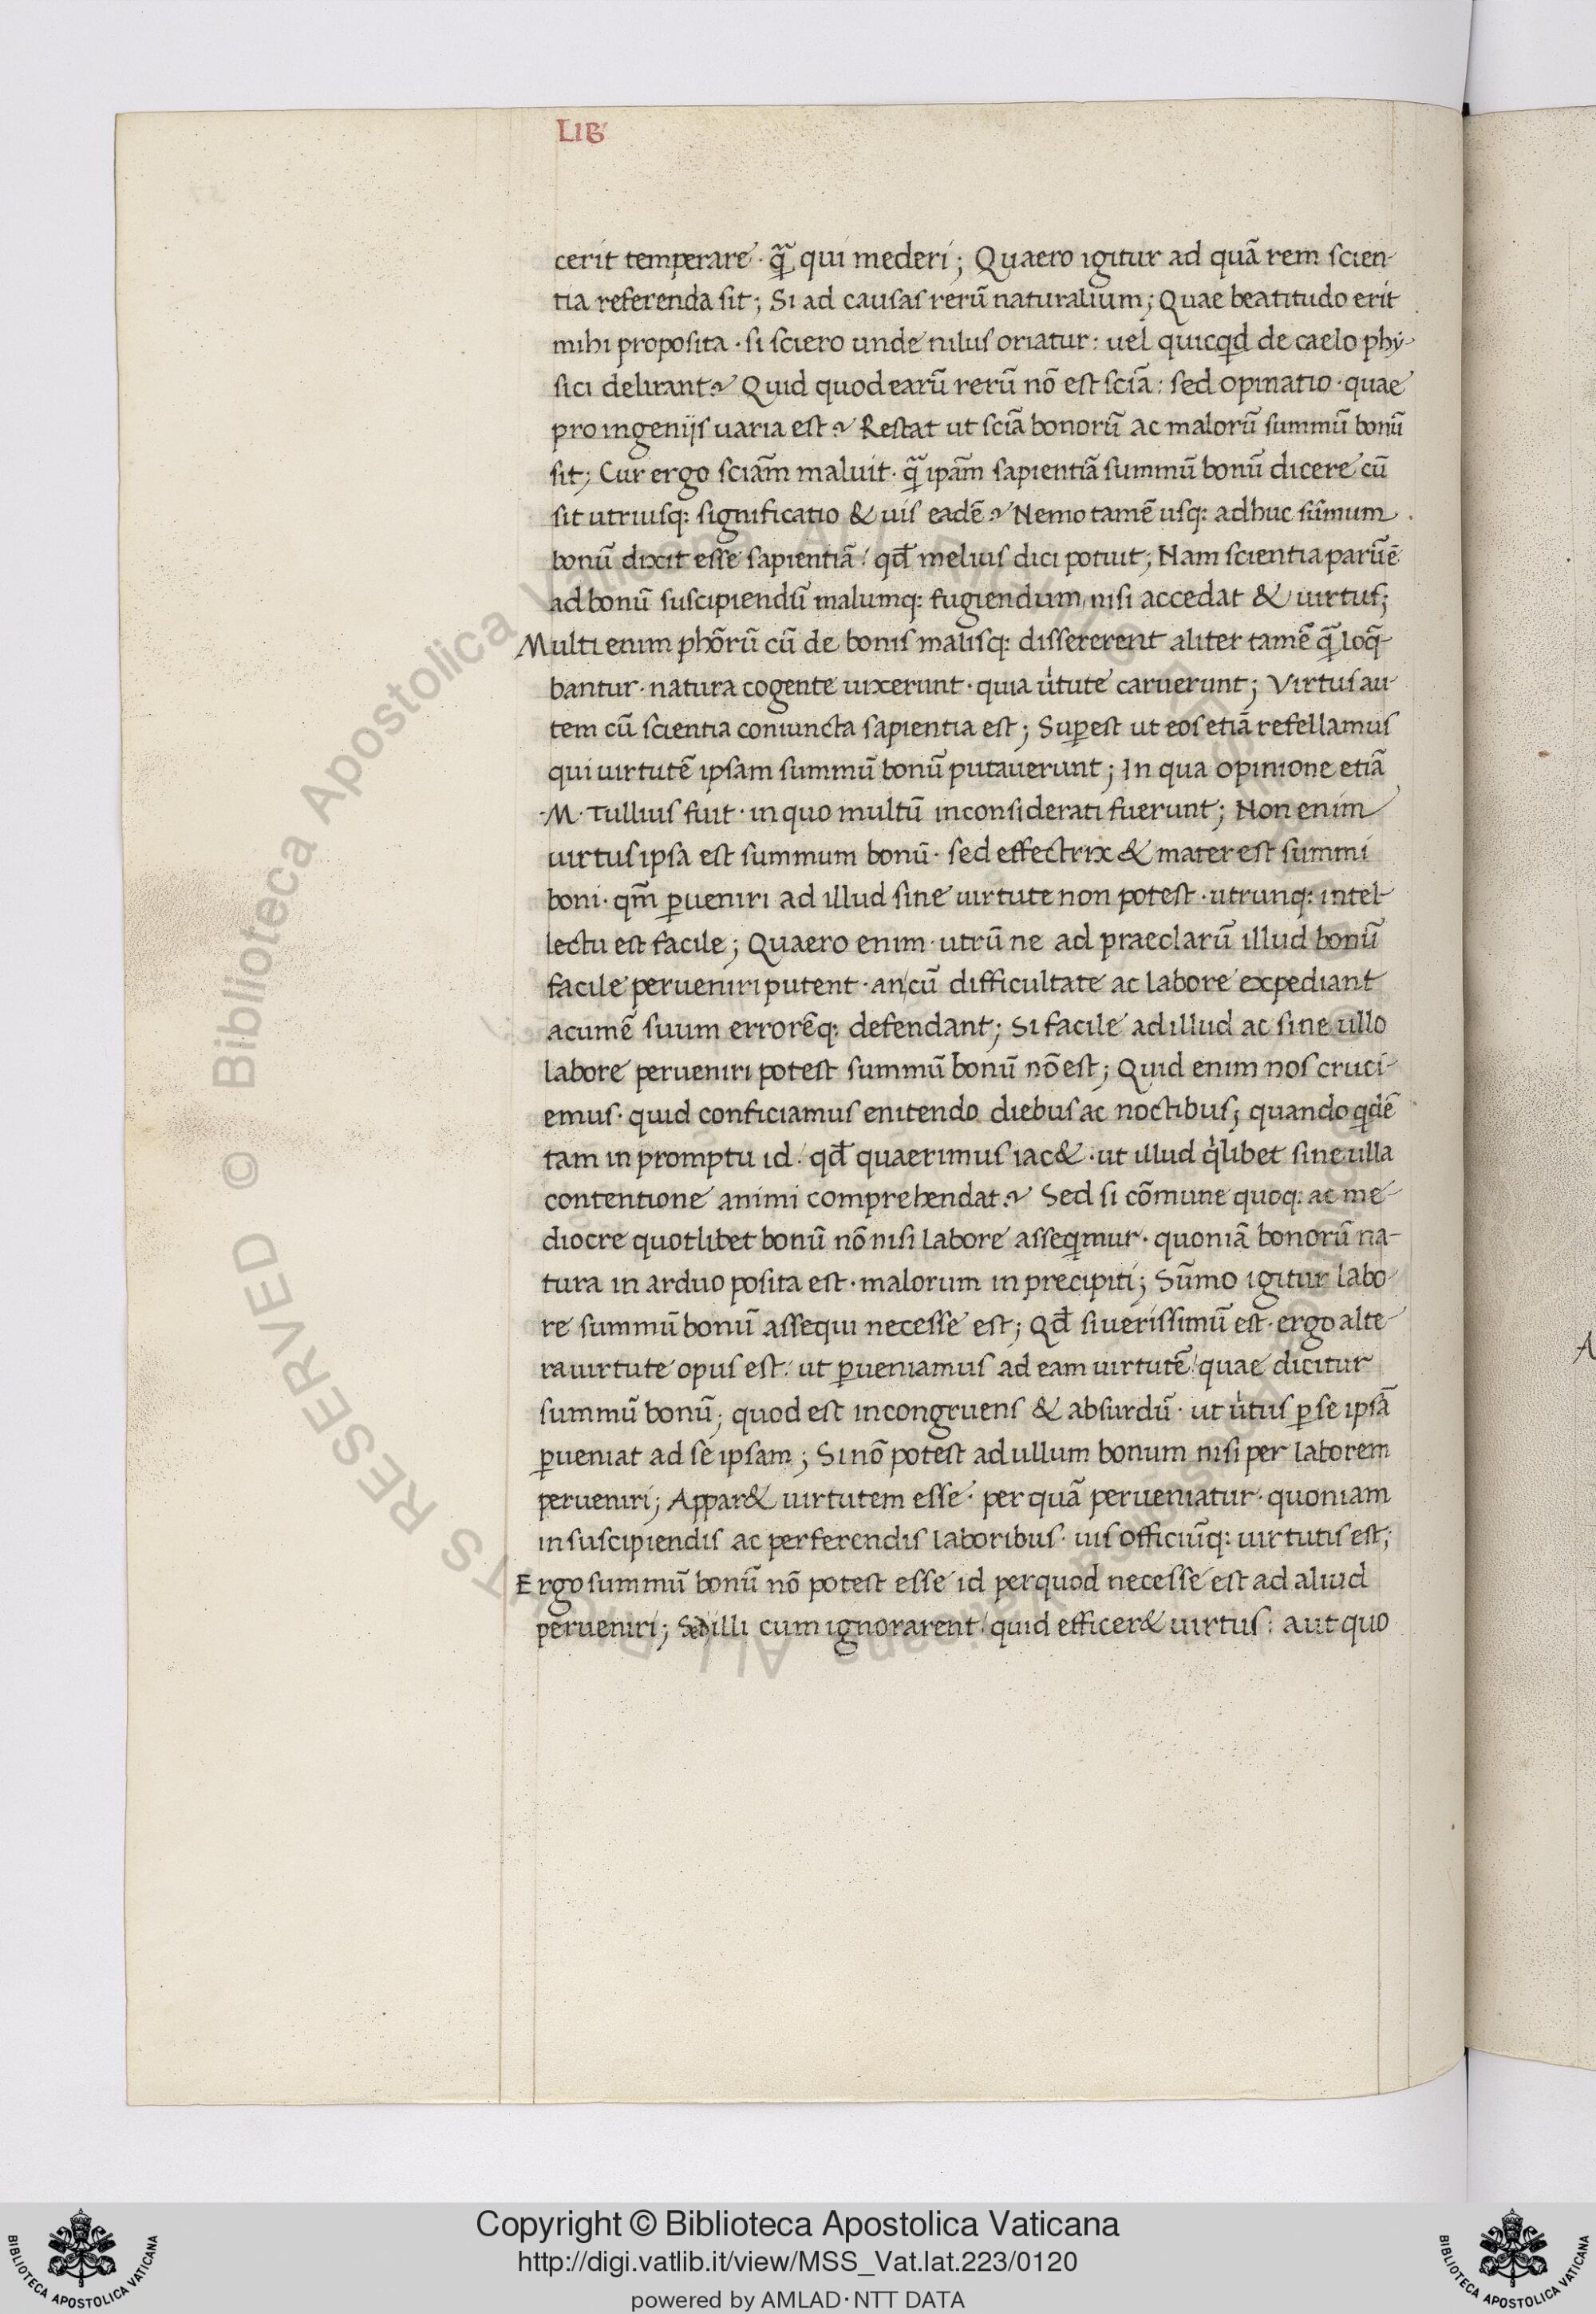 LIB
cerit temperare · q̄ qui mederi; Quaero igitur ad quā rem scien-
tia referenda sit; Si ad causas rerū naturalium; Quae beatitudo erit
mihi proposita · si sciero unde nilus oriatur: uel quicqd de caelo phy-
sici delirant? Quid quod earū rerū nō est scīa: sed opinatio · quae
pro ingeniis uaria est? Restat ut scīa bonorū ac malorū summū bonū
sit; Cur ergo scīam maluit · q̄ ipām sapientiā summū bonū dicere cū
sit utriusq: significatio & uis eadē? Nemo tamē usq: adhuc sūmum
bonū dixit esse sapientiā: qd̄ melius dici potuit; Nam scientia parū ē
ad bonū suscipiendū malumq: fugiendum, nisi accedat & uirtus;
Multi enim phōrū cū de bonis malisq: dissererent aliter tamē q̄ loq̄-
bantur · natura cogente uixerunt · quia uirtute caruerunt; Virtus au-
tem cū scientia coniuncta sapientia est; Supest ut eos etiā refellamus
qui uirtutē ipsam summū bonū putauerunt; In qua opinione etiā
·M· Tullius fuit · in quo multū inconsiderati fuerunt; Non enim
uirtus ipsa est summum bonū · sed effectrix & mater est summi
boni · qm̄ pueniri ad illud sine uirtute non potest · utrunq: intel-
lectu est facile; Quaero enim · utrū ne ad praeclarū illud bonū
facile perueniri putent · an cū difficultate ac labore expediant
acumē suum errorēq: defendant; Si facile ad illud ac sine ullo
labore perueniri potest summū bonū nō est; Quid enim nos cruci-
emus · quid conficiamus enitendo diebus ac noctibus; quando qdē
tam in promptu id: qd̄ quaerimus iac& · ut illud qlibet sine ulla
contentione animi comprehendat? Sed si cōmune quoq: ac me-
diocre quotlibet bonū nō nisi labore asseqmur · quoniā bonorū na-
tura in arduo posita est · malorum in precipiti; Sūmo igitur labo-
re summū bonū assequi necesse est; Qd̄ si uerissimū est · ergo alte-
ra uirtute opus est: ut pueniamus ad eam uirtutē: quae dicitur
summū bonū; quod est incongruens & absurdū · ut uirtus p se ipsā
pueniat ad se ipsam; Si nō potest ad ullum bonum nisi per laborem
perueniri; Appar& uirtutem esse · per quā perueniatur · quoniam
in suscipiendis ac perferendis laboribus · uis officiūq: uirtutis est;
Ergo summū bonū nō potest esse id per quod necesse est ad aliud
perueniri; Sed illi cum ignorarent: quid efficer& uirtus: aut quo
A
© Biblioteca Apostolica Vaticana ALL RIGHTS RESERVED
Copyright © Biblioteca Apostolica Vaticana
http://digi.vatlib.it/view/MSS_Vat.lat.223/0120
powered by AMLAD·NTT DATA
BIBLIOTECA APOSTOLICA VATICANA
BIBLIOTECA APOSTOLICA VATICANA